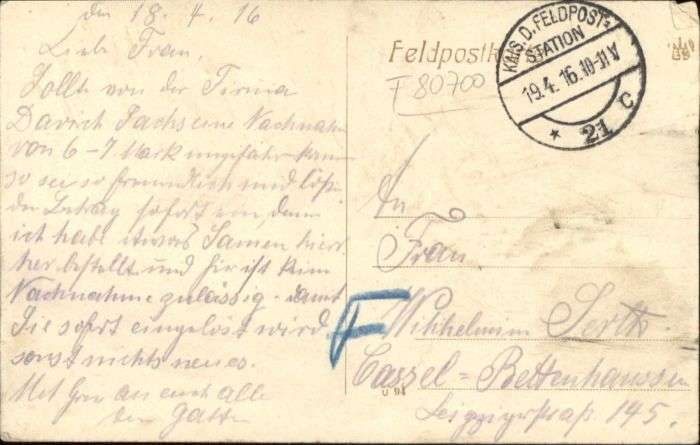 den 18.4.16
Liebe Frau.
Sollte von der Firma
David Sachs eine Nachnahme
von 6-7 Mark ungefähr kommen
so sei so freundlich und löse
den Betrag sofort ein, denn
ich habe etwas Samen hier
her bestellt und hir ist kein
Nachnahme zulässig. damit
Sie sofort eingelöst wird
sonst nichts neues.
Mit Gruß an euch alle
dein Gatte
Feldpostkarte
F 80700
KAIS. D. FELDPOST-
STATION
19.4.16.10-11V
* 21 C
An
Frau
Wihhelmm
Cassel-Bettenhaussen
Leipzigerstraß 145.
F